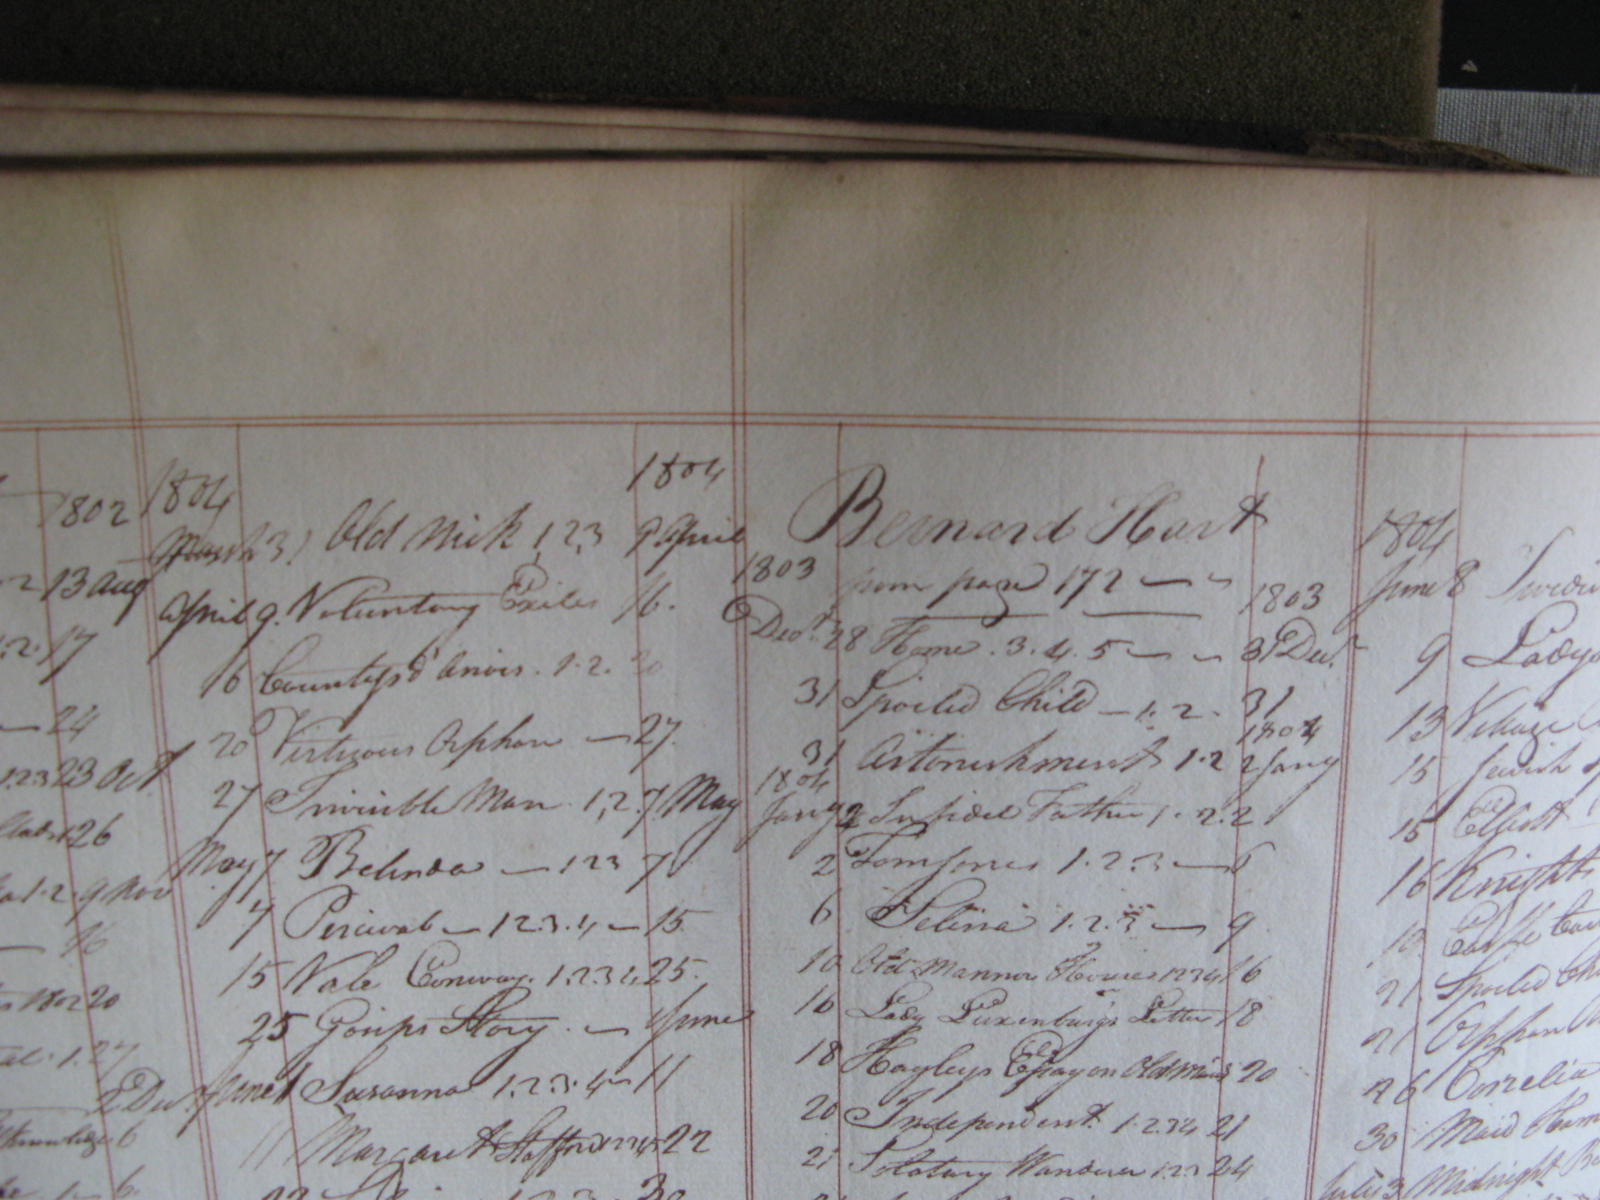 1802
13 aug
17
24
1.2.3 23 Oct
26
1.2. 9 Nov
16
20
1.27
2 Dec
6
6.
1804 1804
March 31 Old Nick 1 2 3 9 April
April 9. Voluntary Exiles 16.
16 1.2. 20
20 Virtuous Orphan — 27.
27 Invisible Man 1,2. 7 May
May 7 Belinda — 1 2 3 7
7 Percival — 1 2.3.4 — 15
15 Vale Conway. 1.2.3 4. 25.
25 Gossips Story. — 1 June
June 1 Susanna 1.2.3.4 — 11
11 Margaret Stafford 1 2 3 4 5 22
22 1.2.3 30
Bernard Hart
from page 172 — —
1803 1803
Decr. 28 Home. 3. 4. 5 — — 31 Decr.
31 Spoiled Child — 1. 2. 31
1804
31 Astonishment 1.2 2 Jany
1804
Jany 2 Infidel Father 1. 2. 2
2 Tom Jones 1.2.3 — 6
6 Selina 1.2.3 — 9
10 Old Mannor House 1 2 3 4 16
16 Lady Luxenburgs Letter 18
18 Hayleys Essay on Old Maids 20
20 Independent 1.2.3 4 21
21 Solatary Wanderer 1.2.3 24
1804
June 8
9 Ladys
13 Village
15 Jewish
15
16 Knights
Castle
21 Spoiled Chi
21 Orphan
26 Correlia
30 Maid
July 3 Midnight